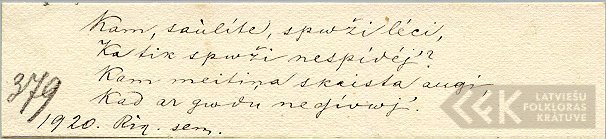 Kam, saùlíte, spwži léci,
Ka tik spwži nespídéj'?
Kam meitiņa skaista augi,
Kad ar gwdu nedívwj'.
379
1920. Rīg. sem.
LATVIEŠU
FOLKLORAS
KRĀTUVE